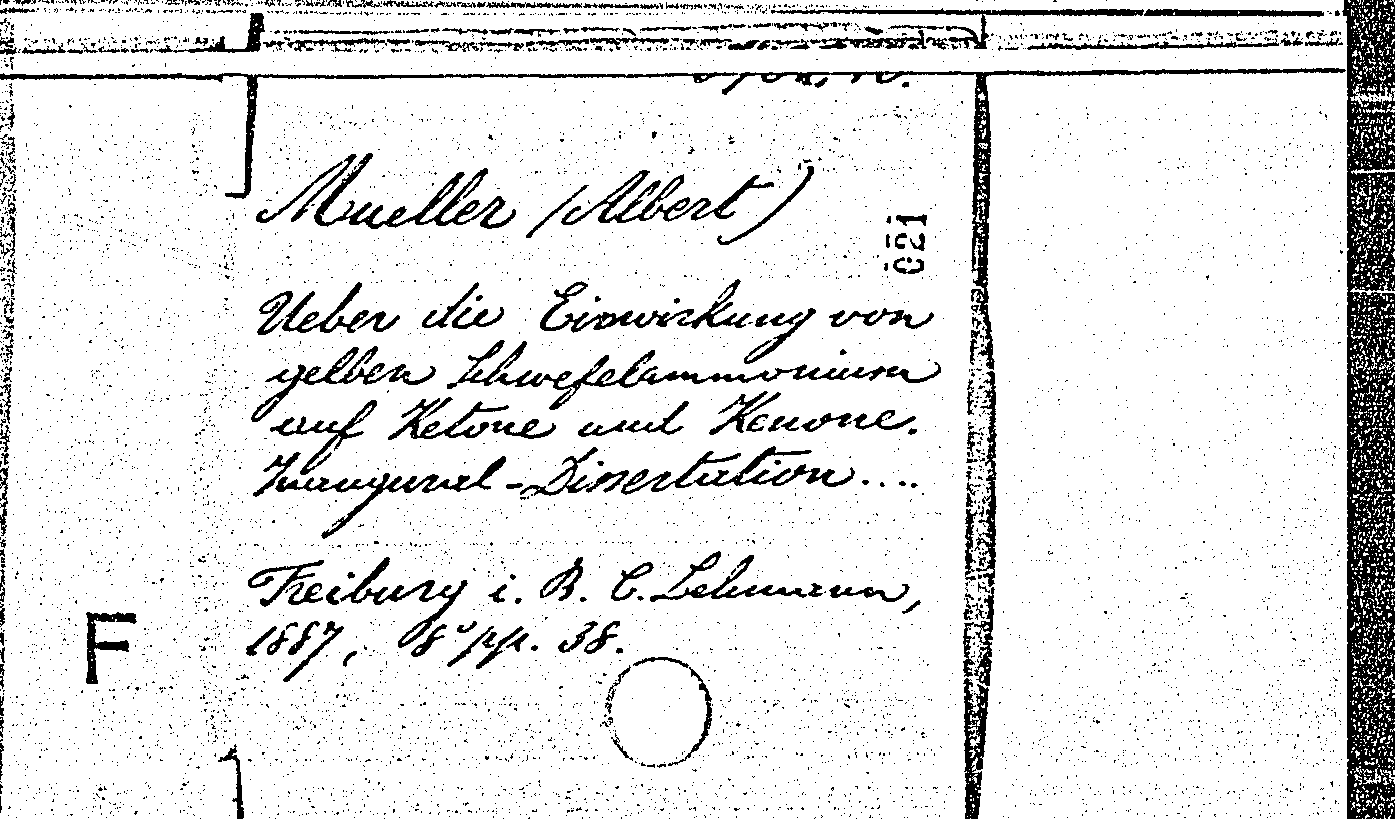 Mueller (Albert)
021
Ueber die Einwirkung von
gelben Schwefelammonium
auf Ketone und Kenone.
Inaugural-Dissertation....
Freiburg i. B. C. Lehmann,
1887, 8° pp. 38.
F